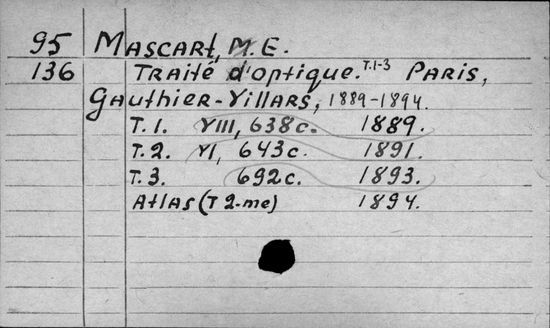 95 MASCART, M.E.
136 TRAITÉ d'optique. T.1-3 PARIS,
GAUTHIER-VILLARS, 1889-1894.
T.1. VIII, 638c. 1889.
T.2. VI, 643c. 1891.
T.3. 692c. 1893.
ATLAS (T 2-me) 1894.